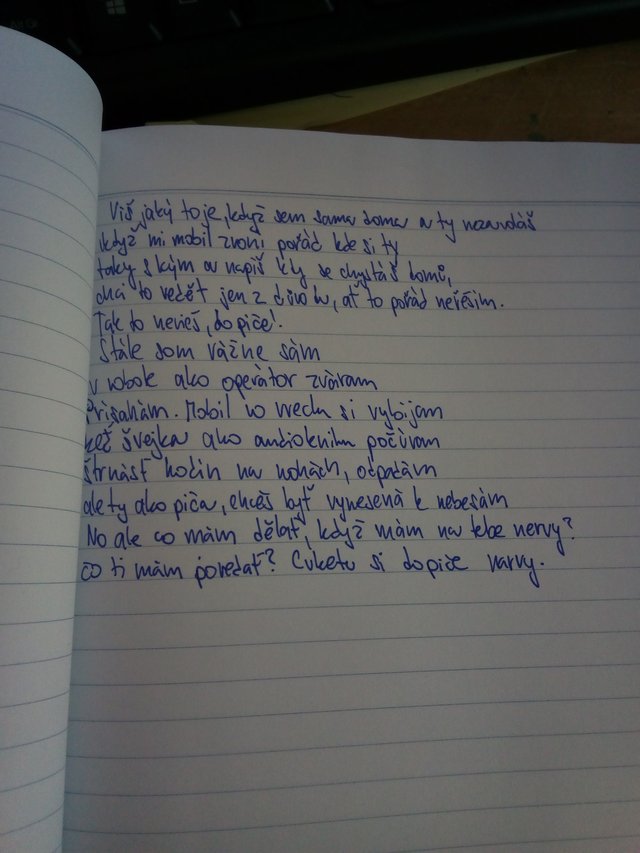 Víš jaký to je, když sem sama doma a ty nezavoláš
když mi mobil zvoní pořád kde si ty
taky s kým a napíš kdy se chystáš domů,
chci to vedět jen z důvodu, ať to pořád neřešim.
Tak to nerieš, do piče!
Stále som vážne sám
v robote ako operátor zváram
Prisahám. Mobil vo vrecku si vybíjam
keď Švejka ako audioknihu počúvam
štrnásť hodín na nohách, odpadám
ale ty ako piča, chceš byť vynesená k nebesám
No ale co mám dělat, když mám na tebe nervy?
čo ti mám povedať? Cuketu si do piče narvy.